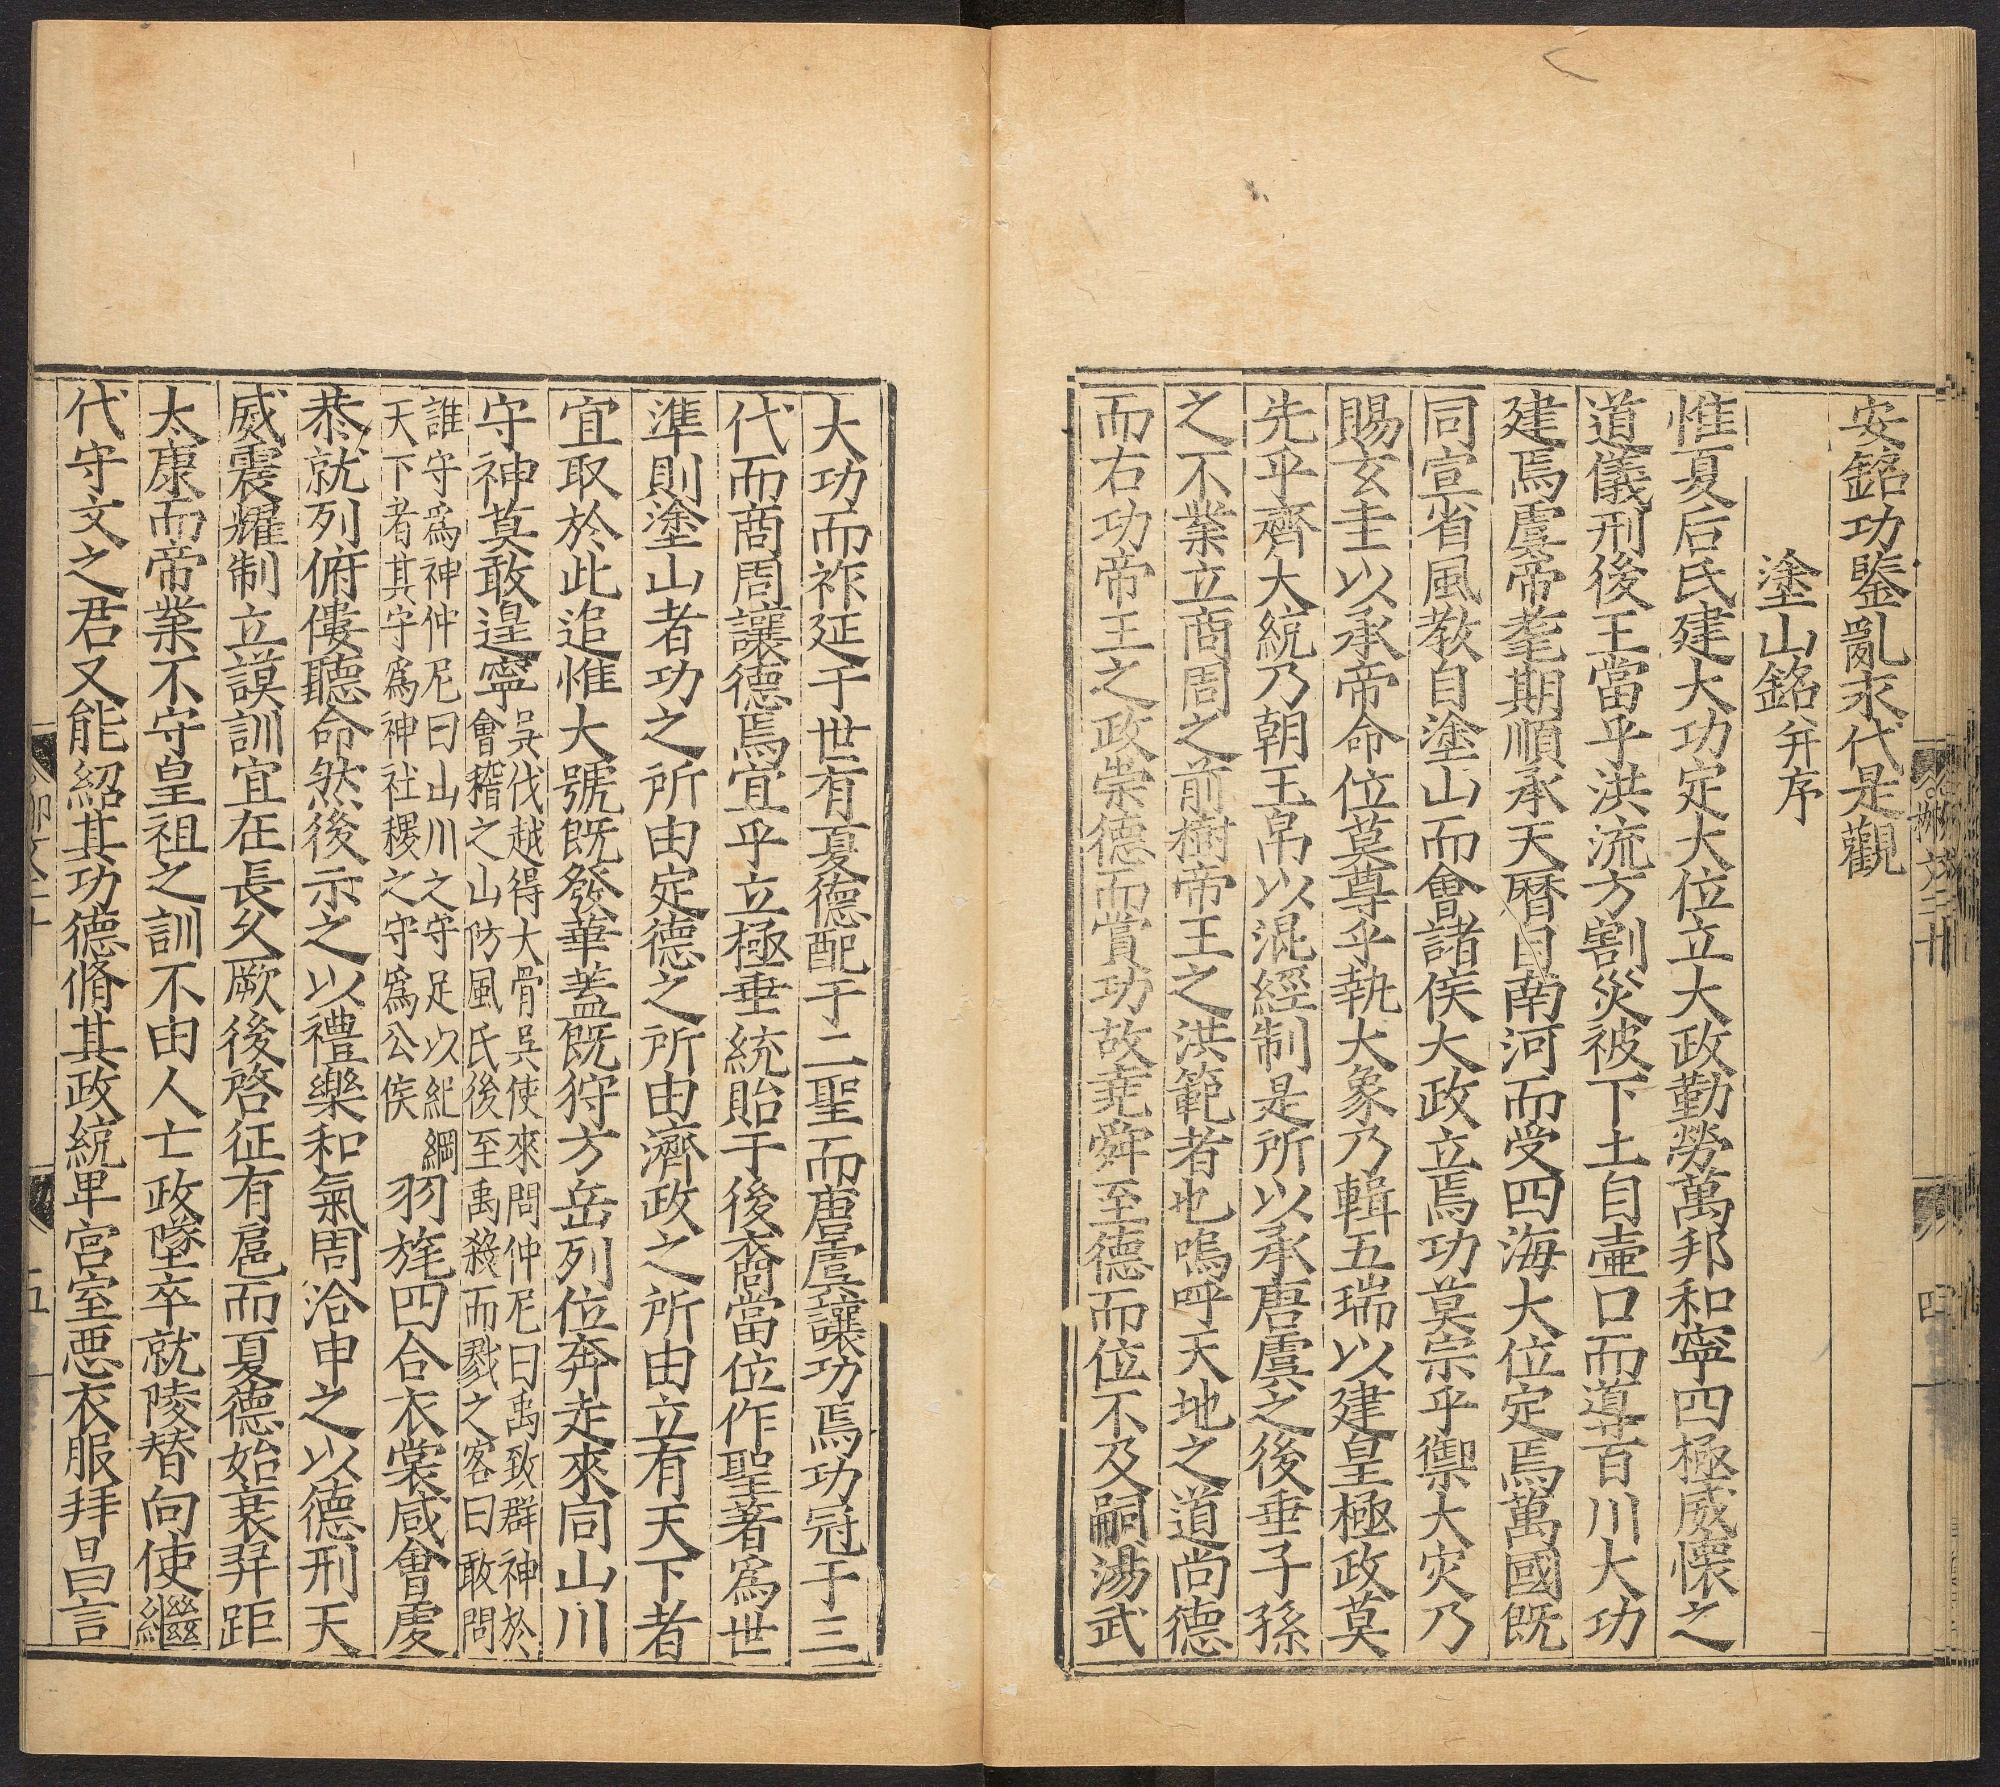 安銘功鑒亂永代是觀
塗山銘并序
惟夏后氏建大功定大位立大政勤勞萬邦和寧四極威懷之
道儀刑後王當乎洪流方割災被下土自壷口而導百川大功
建焉虞帝耄期順承天曆自南河而受四海大位定焉萬國旣
同宣省風教自塗山而會諸侯大政立焉功莫宗乎禦大灾乃
賜玄圭以承帝命位莫尊乎執大象乃輯五瑞以建皇極政莫
先乎齊大統乃朝玉帛以混經制是所以承唐虞之後垂子孫
之不業立商周之前樹帝王之洪範者也嗚呼天地之道尚德
而右功帝王之政崇德而賞功故堯舜至德而位不及嗣湯武
大功而祚延于世有夏德配于二聖而唐虞讓功焉功冠于三
代而商周讓德焉宜乎立極垂統貽于後裔當位作聖著爲世
準則塗山者功之所由定德之所由濟政之所由立有天下者
宜取於此追惟大號旣發華蓋旣狩方岳列位奔走來同山川
守神莫敢遑寧吳伐越得大骨吳使來問仲尼曰禹致群神於
會稽之山防風氏後至禹殺而戮之客曰敢問
誰守爲神仲尼曰山川之守足以紀綱
天下者其守爲神社稷之守爲公侯羽旄四合衣裳咸會虔
恭就列俯僂聽命然後示之以禮樂和氣周洽申之以德刑天
威震耀制立謨訓宜在長久厥後啓征有扈而夏德始衰羿距
太康而帝業不守皇祖之訓不由人亡政墜卒就陵替向使繼
代守文之君又能紹其功德脩其政統卑宮室惡衣服拜昌言
四
五